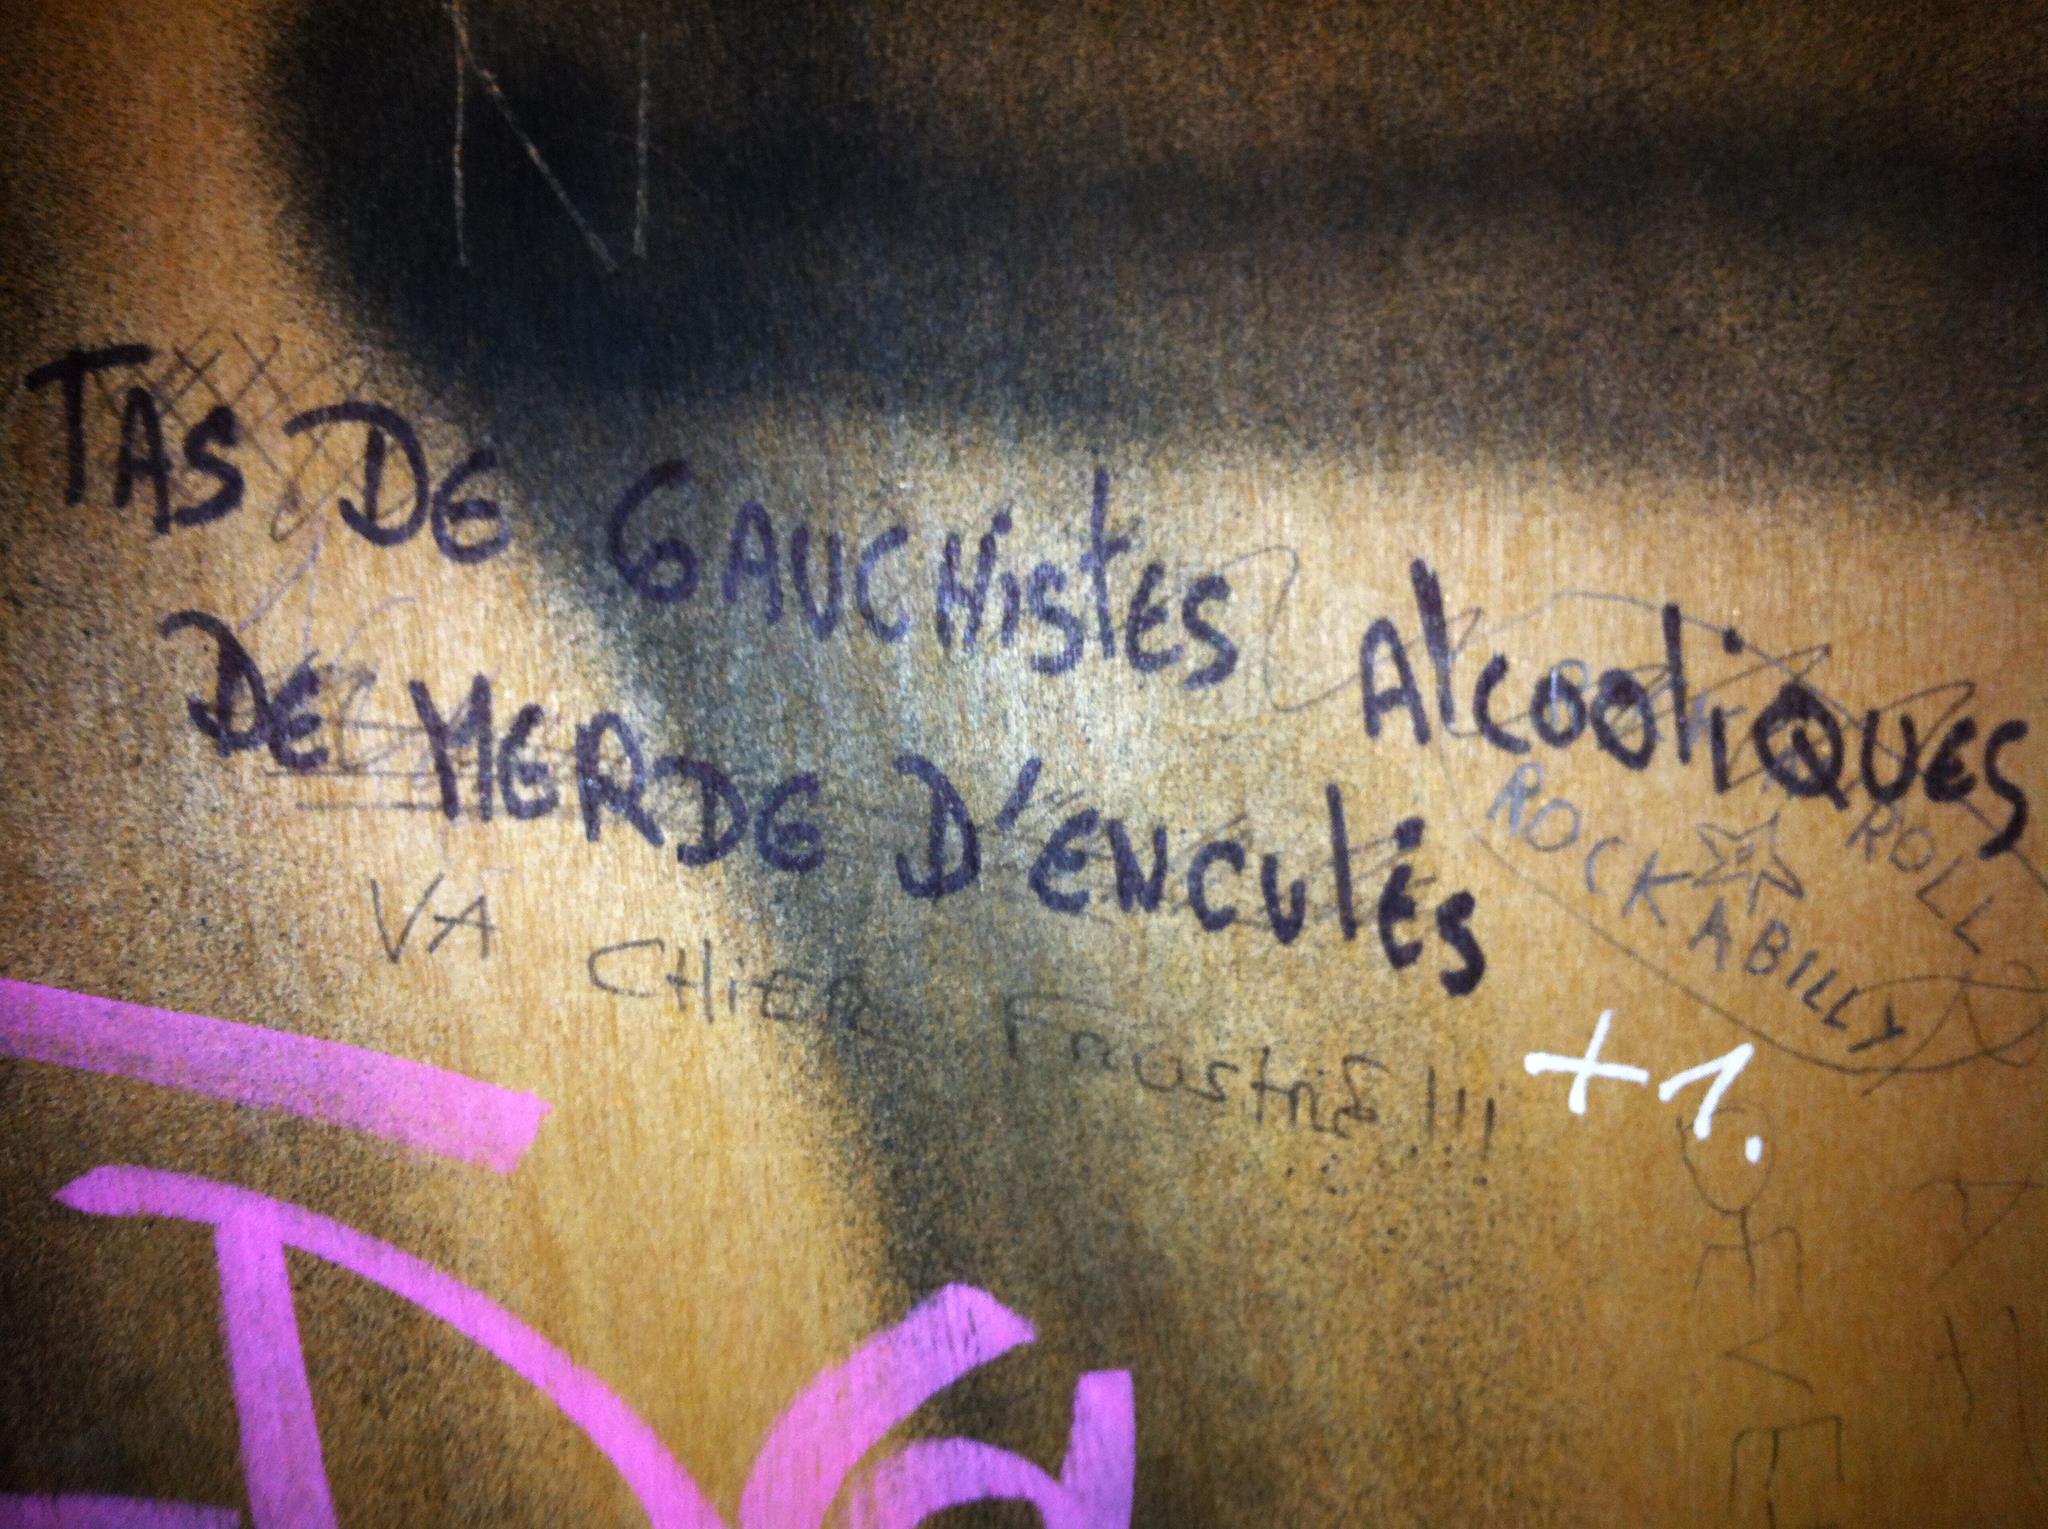 N
TAS DE GAUCHistES AlcooliQUES
DE MERDE D'ENCULÉS
ROLL
ROCKABILLY
VA CHiER FRUStRÉ !!!
+1.